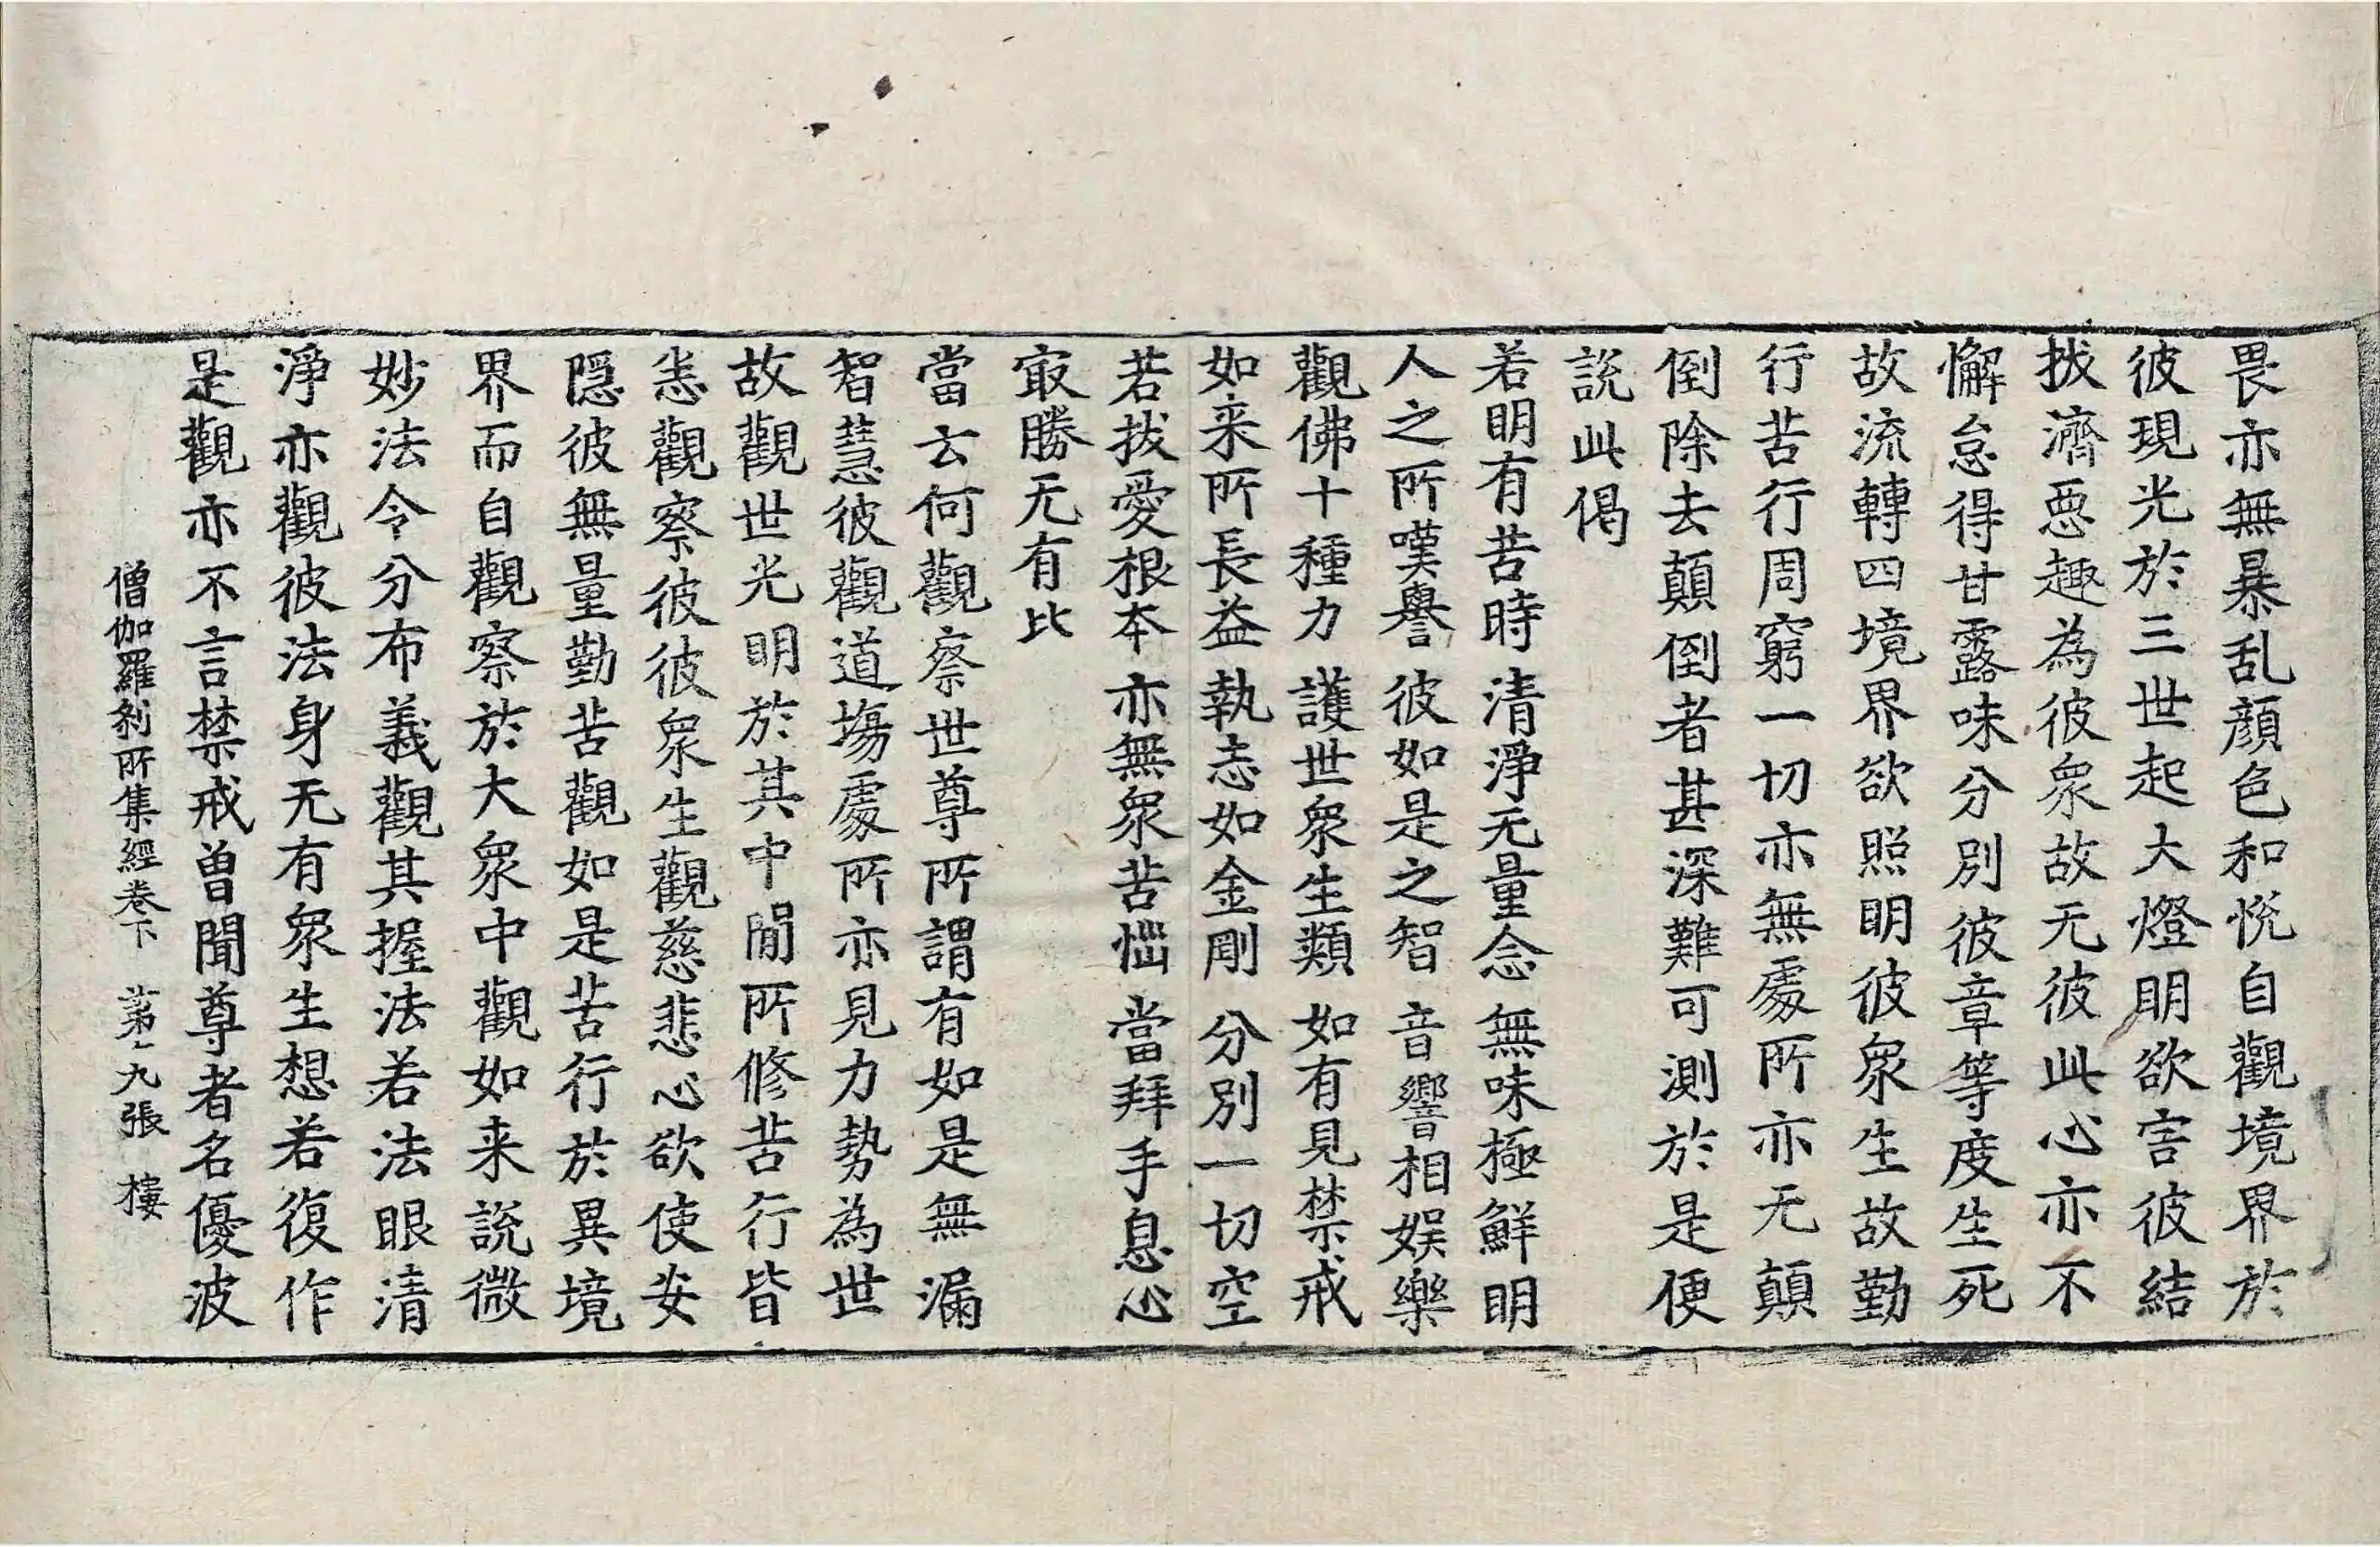 畏亦無暴乱顔色和悅自觀境界於
彼現光於三世起大燈明欲害彼結
拔濟惡趣為彼衆故无彼此心亦不
懈怠得甘露味分別彼章等度生死
故流轉四境界欲照明彼衆生故勤
行苦行周窮一切亦無處所亦无顛
倒除去顛倒者甚深難可測於是便
說此偈
若明有苦時 清淨无量念 無味極鮮明
人之所嘆譽 彼如是之智 音響相娛樂
觀佛十種力 護世衆生類 如有見禁戒
如来所長益 執志如金剛 分別一切空
若拔愛根本 亦無衆苦惱 當拜手息心
冣勝无有比
當云何觀察世尊所謂有如是無漏
智慧彼觀道場處所亦見力勢為世
故觀世光明於其中間所修苦行皆
悉觀察彼彼衆生觀慈悲心欲使安
隱彼無量勤苦觀如是苦行於異境
界而自觀察於大衆中觀如来說微
妙法令分布義觀其握法若法眼清
淨亦觀彼法身无有衆生想若復作
是觀亦不言禁戒曽聞尊者名優波
僧伽羅刹所集經卷下 第十九張 樓